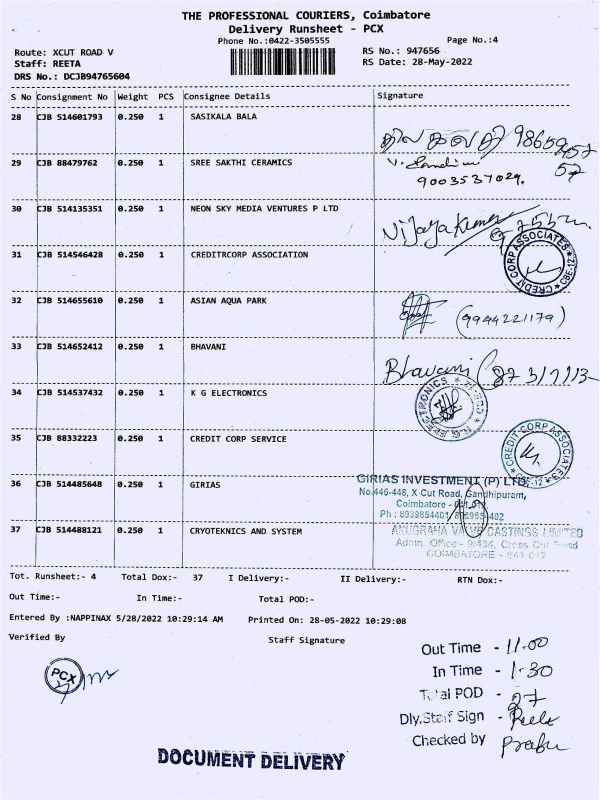 THE PROFESSIONAL COURIERS, Coimbatore
Delivery Runsheet - PCX
Phone No.:0422-3505555
Page No.:4
Route: XCUT ROAD V
RS No.: 947656
Staff: REETA
RS Date: 28-May-2022
DRS No.: DCJB94765604
S No Consignment No Weight PCS Consignee Details Signature
28 CJB 514601793 0.250 1 SASIKALA BALA
திலகவதி
29 CJB 88479762 0.250 1 SREE SAKTHI CERAMICS
9003537029.
30 CJB 514135351 0.250 1 NEON SKY MEDIA VENTURES P LTD
Vijayakumar
31 CJB 514546428 0.250 1 CREDITRCORP ASSOCIATION
CREDIT CORP ASSOCIATES
CBE-12
32 CJB 514655610 0.250 1 ASIAN AQUA PARK
(9944221179)
33 CJB 514652412 0.250 1 BHAVANI
Bhavani
34 CJB 514537432 0.250 1 K G ELECTRONICS
K.G ELECTRONICS
CBE-12
35 CJB 88332223 0.250 1 CREDIT CORP SERVICE
CREDIT CORP ASSOCIATES
CBE-12
36 CJB 514485648 0.250 1 GIRIAS
GIRIAS INVESTMENT (P) LTD.
No.446-448, X-Cut Road, Gandhipuram,
Coimbatore -
Ph : 8939854401
37 CJB 514488121 0.250 1 CRYOTEKNICS AND SYSTEM
ANUGRAHA VALVE CASTINGS LIMITED
Admn. Office:- Cross Cut Road
COIMBATORE - 641 012
Tot. Runsheet:- 4 Total Dox:- 37 I Delivery:- II Delivery:- RTN Dox:-
Out Time:- In Time:- Total POD:-
Entered By :NAPPINAX 5/28/2022 10:29:14 AM Printed On: 28-05-2022 10:29:08
Verified By Staff Signature
PCX
Out Time - 11.00
In Time - 1.30
Total POD -
Dly.Staff Sign - Reeta
Checked by Prabu
DOCUMENT DELIVERY